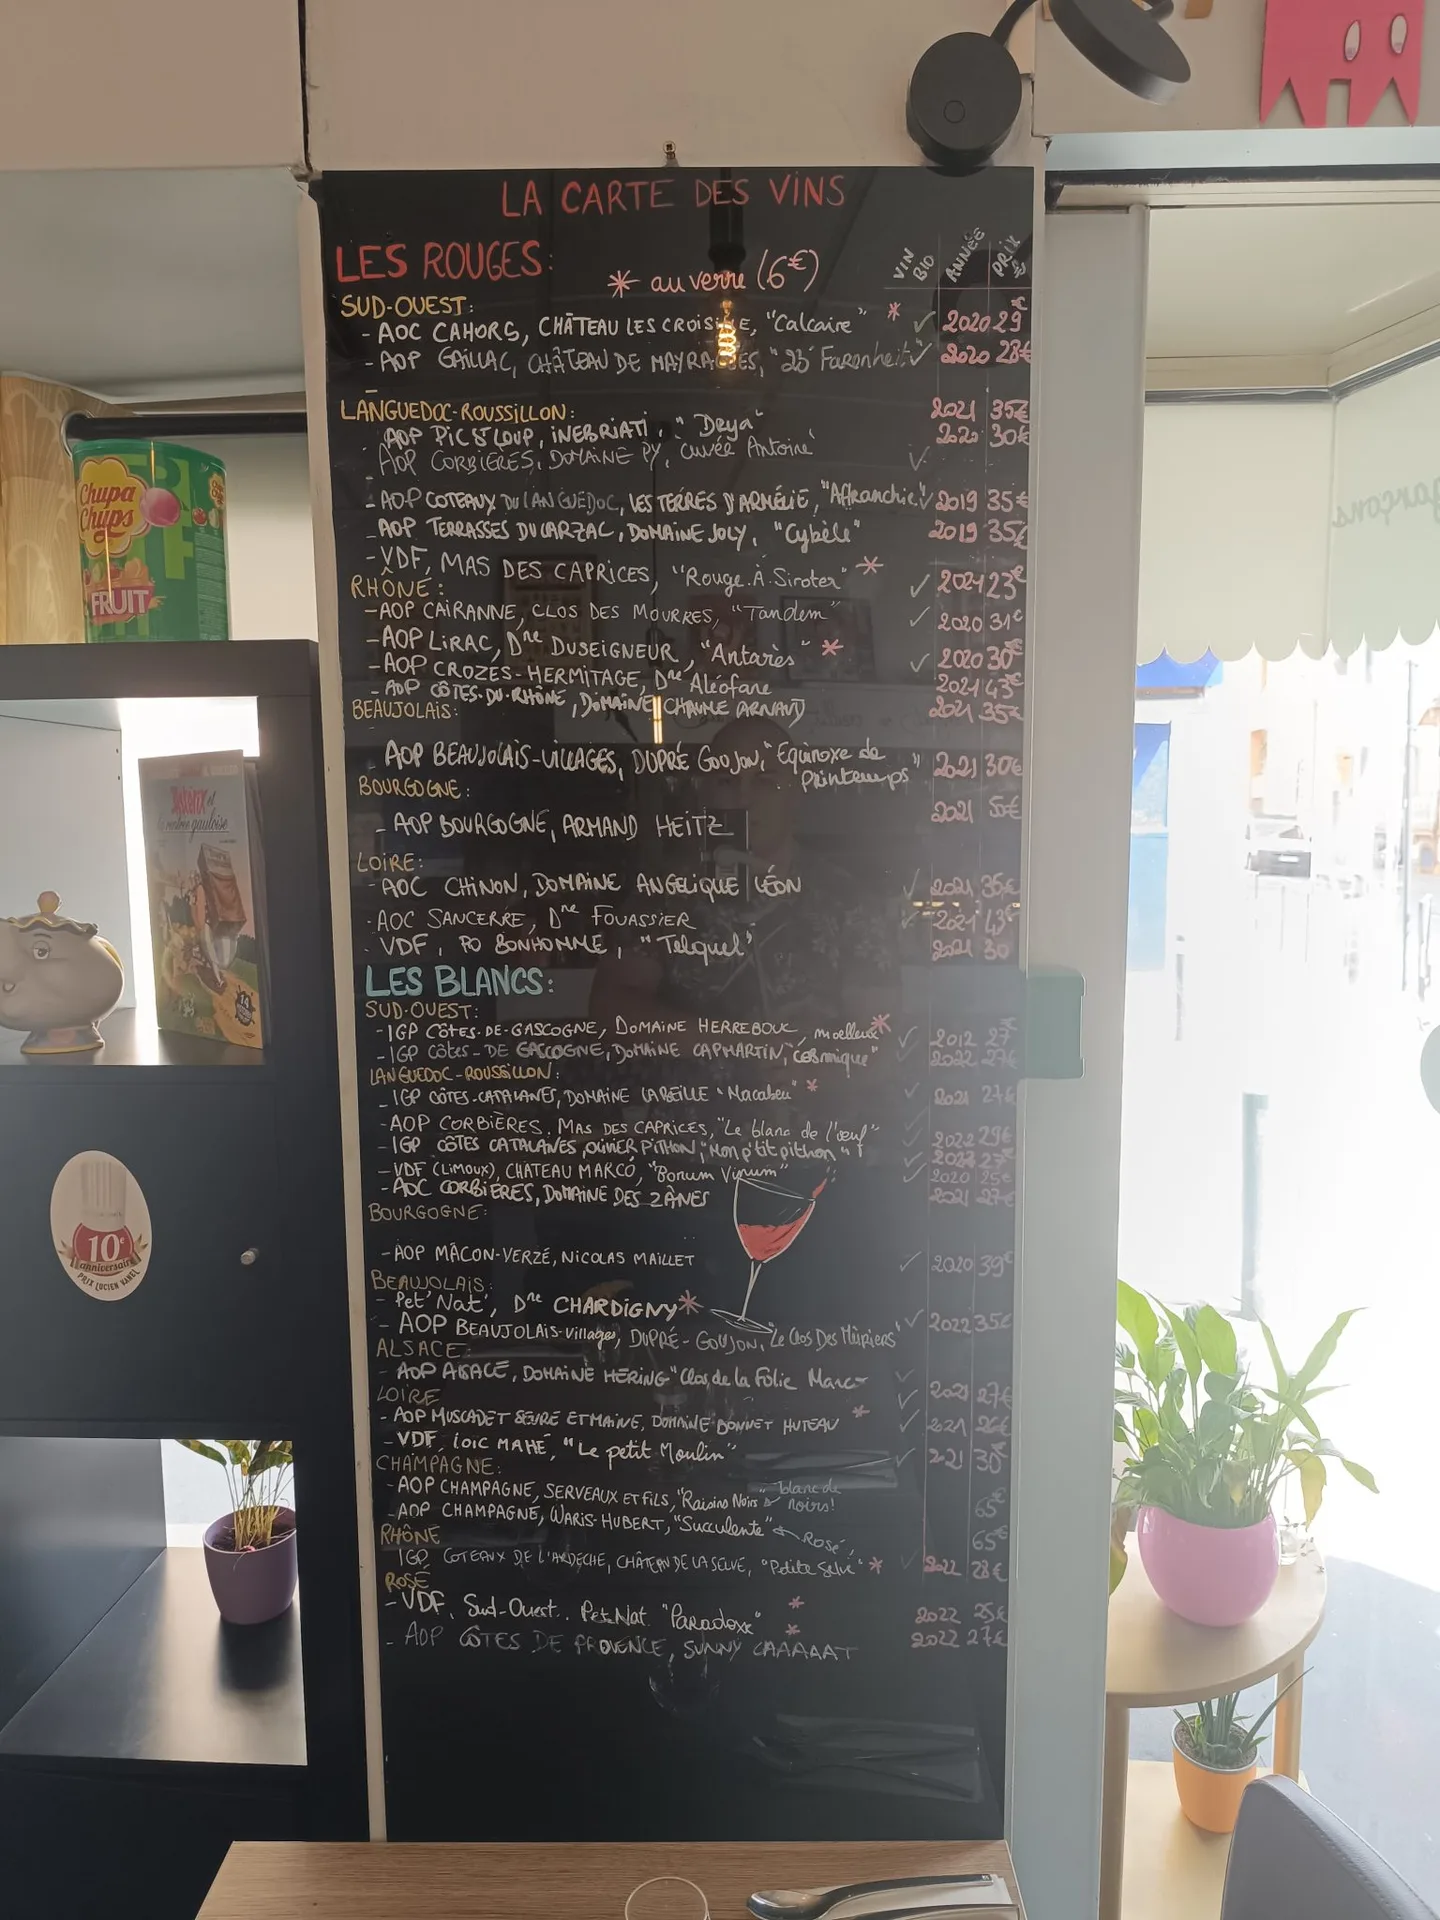 LA CARTE DES VINS
LES ROUGES:
* au verre (6€)
VIN BIO ANNÉE PRIX
SUD-OUEST:
- AOC CAHORS, CHÂTEAU LES CROISILLE, "Calcaire" * ✓ 2020 29€
- AOP GAILLAC, CHÂTEAU DE MAYRAGUES, Farenheit ✓ 2020 28€
LANGUEDOC-ROUSSILLON:
AOP PIC ST LOUP, INEBRIATI, "Deya" 2021 35€
AOP CORBIÈRES, DOMAINE PY, Cuvée Antoine ✓ 2020 30€
- AOP COTEAUX DU LANGUEDOC, LES TERRES D'ARMÉLIE, "Affranchie" ✓ 2019 35€
- AOP TERRASSES DU LARZAC, DOMAINE JOLY, "Cybèle" 2019 35€
- VDF, MAS DES CAPRICES, "Rouge.À.Siroter" * ✓ 2021 23€
RHÔNE:
- AOP CAIRANNE, CLOS DES MOURRES, "Tandem" ✓ 2020 31€
- AOP LIRAC, Dne DUSEIGNEUR, "Antarès" * ✓ 2020 30€
- AOP CROZES-HERMITAGE, Dne Aléofane 2021 43€
- AOP CÔTES-DU-RHÔNE, DOMAINE CHAUME ARNAUD 2021 35€
BEAUJOLAIS:
AOP BEAUJOLAIS-VILLAGES, DUPRÉ GOUJON, "Equinoxe de Printemps" 2021 30€
BOURGOGNE:
- AOP BOURGOGNE, ARMAND HEITZ 2021 55€
LOIRE:
- AOC CHINON, DOMAINE ANGELIQUE LÉON ✓ 2021 35€
- AOC SANCERRE, Dne FOUASSIER ✓ 2021 43€
- VDF, PO BONHOMME, "Telquel" 2021 30
LES BLANCS:
SUD-OUEST:
- IGP CÔTES-DE-GASCOGNE, DOMAINE HERREBOUC, moelleux * ✓ 2012 27€
- IGP CÔTES-DE GASCOGNE, DOMAINE CAPMARTIN, "cosmique" ✓ 2022 27€
LANGUEDOC-ROUSSILLON:
- IGP CÔTES-CATALANES, DOMAINE LABEILLE "Macabeu" * ✓ 2021 27€
- AOP CORBIÈRES, MAS DES CAPRICES, "Le blanc de l'oeuf" ✓ 2022 29€
- IGP CÔTES CATALANES, OLIVIER PITHON, "Mon p'tit pithon" ✓ 27€
- VDF (LIMOUX), CHÂTEAU MARCO, "Bonum Vinum" ✓ 2020 25€
- AOC CORBIÈRES, DOMAINE DES 2 ÂNES 2021 27€
BOURGOGNE:
- AOP MÂCON-VERZÉ, NICOLAS MAILLET ✓ 2020 39€
BEAUJOLAIS:
- Pet'Nat', Dne CHARDIGNY *
- AOP BEAUJOLAIS-Villages, DUPRÉ-GOUJON, "Le Clos Des Mûriers" ✓ 2022 35€
ALSACE:
- AOP ALSACE, DOMAINE HERING "Clos de la Folie Marco" ✓ 2021 27€
LOIRE
- AOP MUSCADET SEVRE ET MAINE, DOMAINE BONNET HUTEAU * ✓ 2021 26€
- VDF, LOIC MAHÉ, "Le petit Moulin" ✓ 2021 30€
CHAMPAGNE:
- AOP CHAMPAGNE, SERVEAUX ET FILS, "Raisins Noirs" blanc de noirs! 65€
- AOP CHAMPAGNE, WARIS-HUBERT, "Succulente" Rosé! 65€
RHÔNE
IGP COTEAUX DE L'ARDECHE, CHÂTEAU DE LA SELVE, "Petite Selve" * ✓ 2022 28€
ROSÉ
- VDF, Sud-Ouest. Pet.Nat "Paradoxe" * 2022 25€
- AOP CÔTES DE PROVENCE, SUNNY CAAAAAT * 2022 27€
Chupa Chups
FRUIT
Astérix et la rentrée gauloise
14
10e anniversaire
PRIX LUCIEN VANEL
garçons